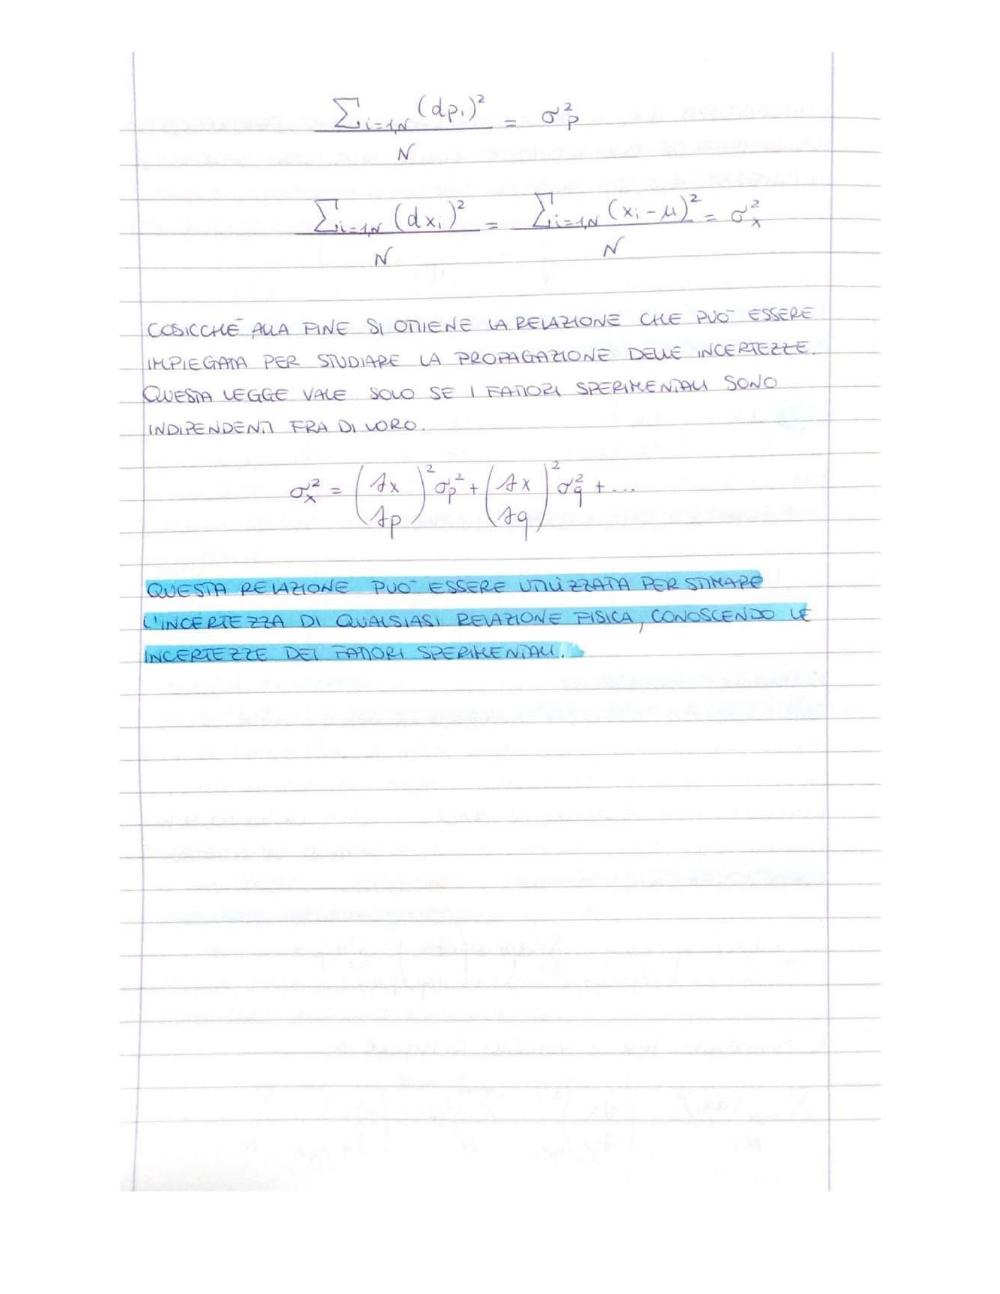 Σi=1,N (dpi)² / N = σ²p
Σi=1,N (dxi)² / N = Σi=1,N (xi-μ)² / N = σ²x
COSICCHÉ ALLA FINE SI OTTIENE LA RELAZIONE CHE PUÒ ESSERE
IMPIEGATA PER STUDIARE LA PROPAGAZIONE DELLE INCERTEZZE.
QUESTA LEGGE VALE SOLO SE I FATTORI SPERIMENTALI SONO
INDIPENDENTI FRA DI LORO.
σ²x = (∂x/∂p)² σ²p + (∂x/∂q)² σ²q + ...
QUESTA RELAZIONE PUÒ ESSERE UTILIZZATA PER STIMARE
L'INCERTEZZA DI QUALSIASI RELAZIONE FISICA, CONOSCENDO LE
INCERTEZZE DEI FATTORI SPERIMENTALI.